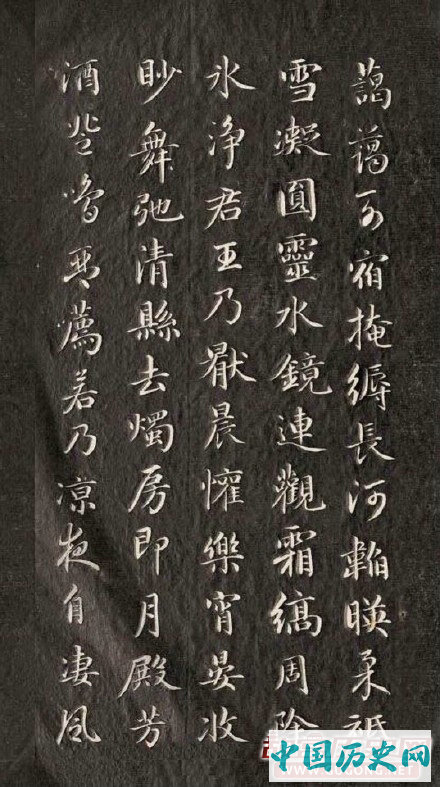 藹藹列宿掩縟長河韜暎柔祇
雪凝圓靈水鏡連觀霜縞周除
氷浄君王乃厭晨懽樂宵晏收
眇舞弛清縣去燭房即月殿芳
酒登鳴琴薦若乃凉夜自凄風
中国历史网